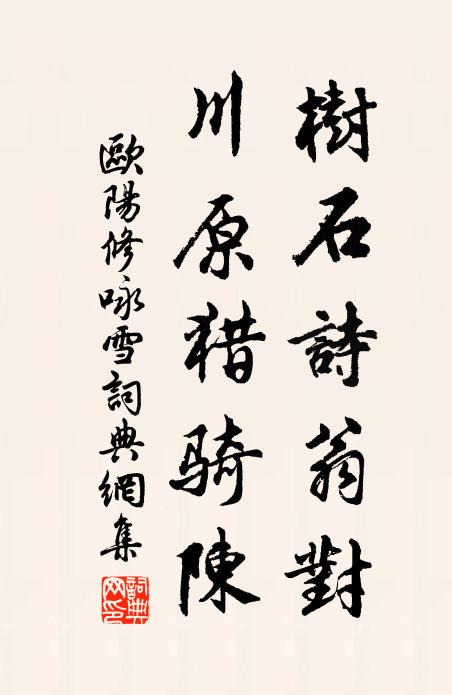 樹石詩翁對
川原猎骑陳
歐陽修咏雪詞典網集
詞典网印